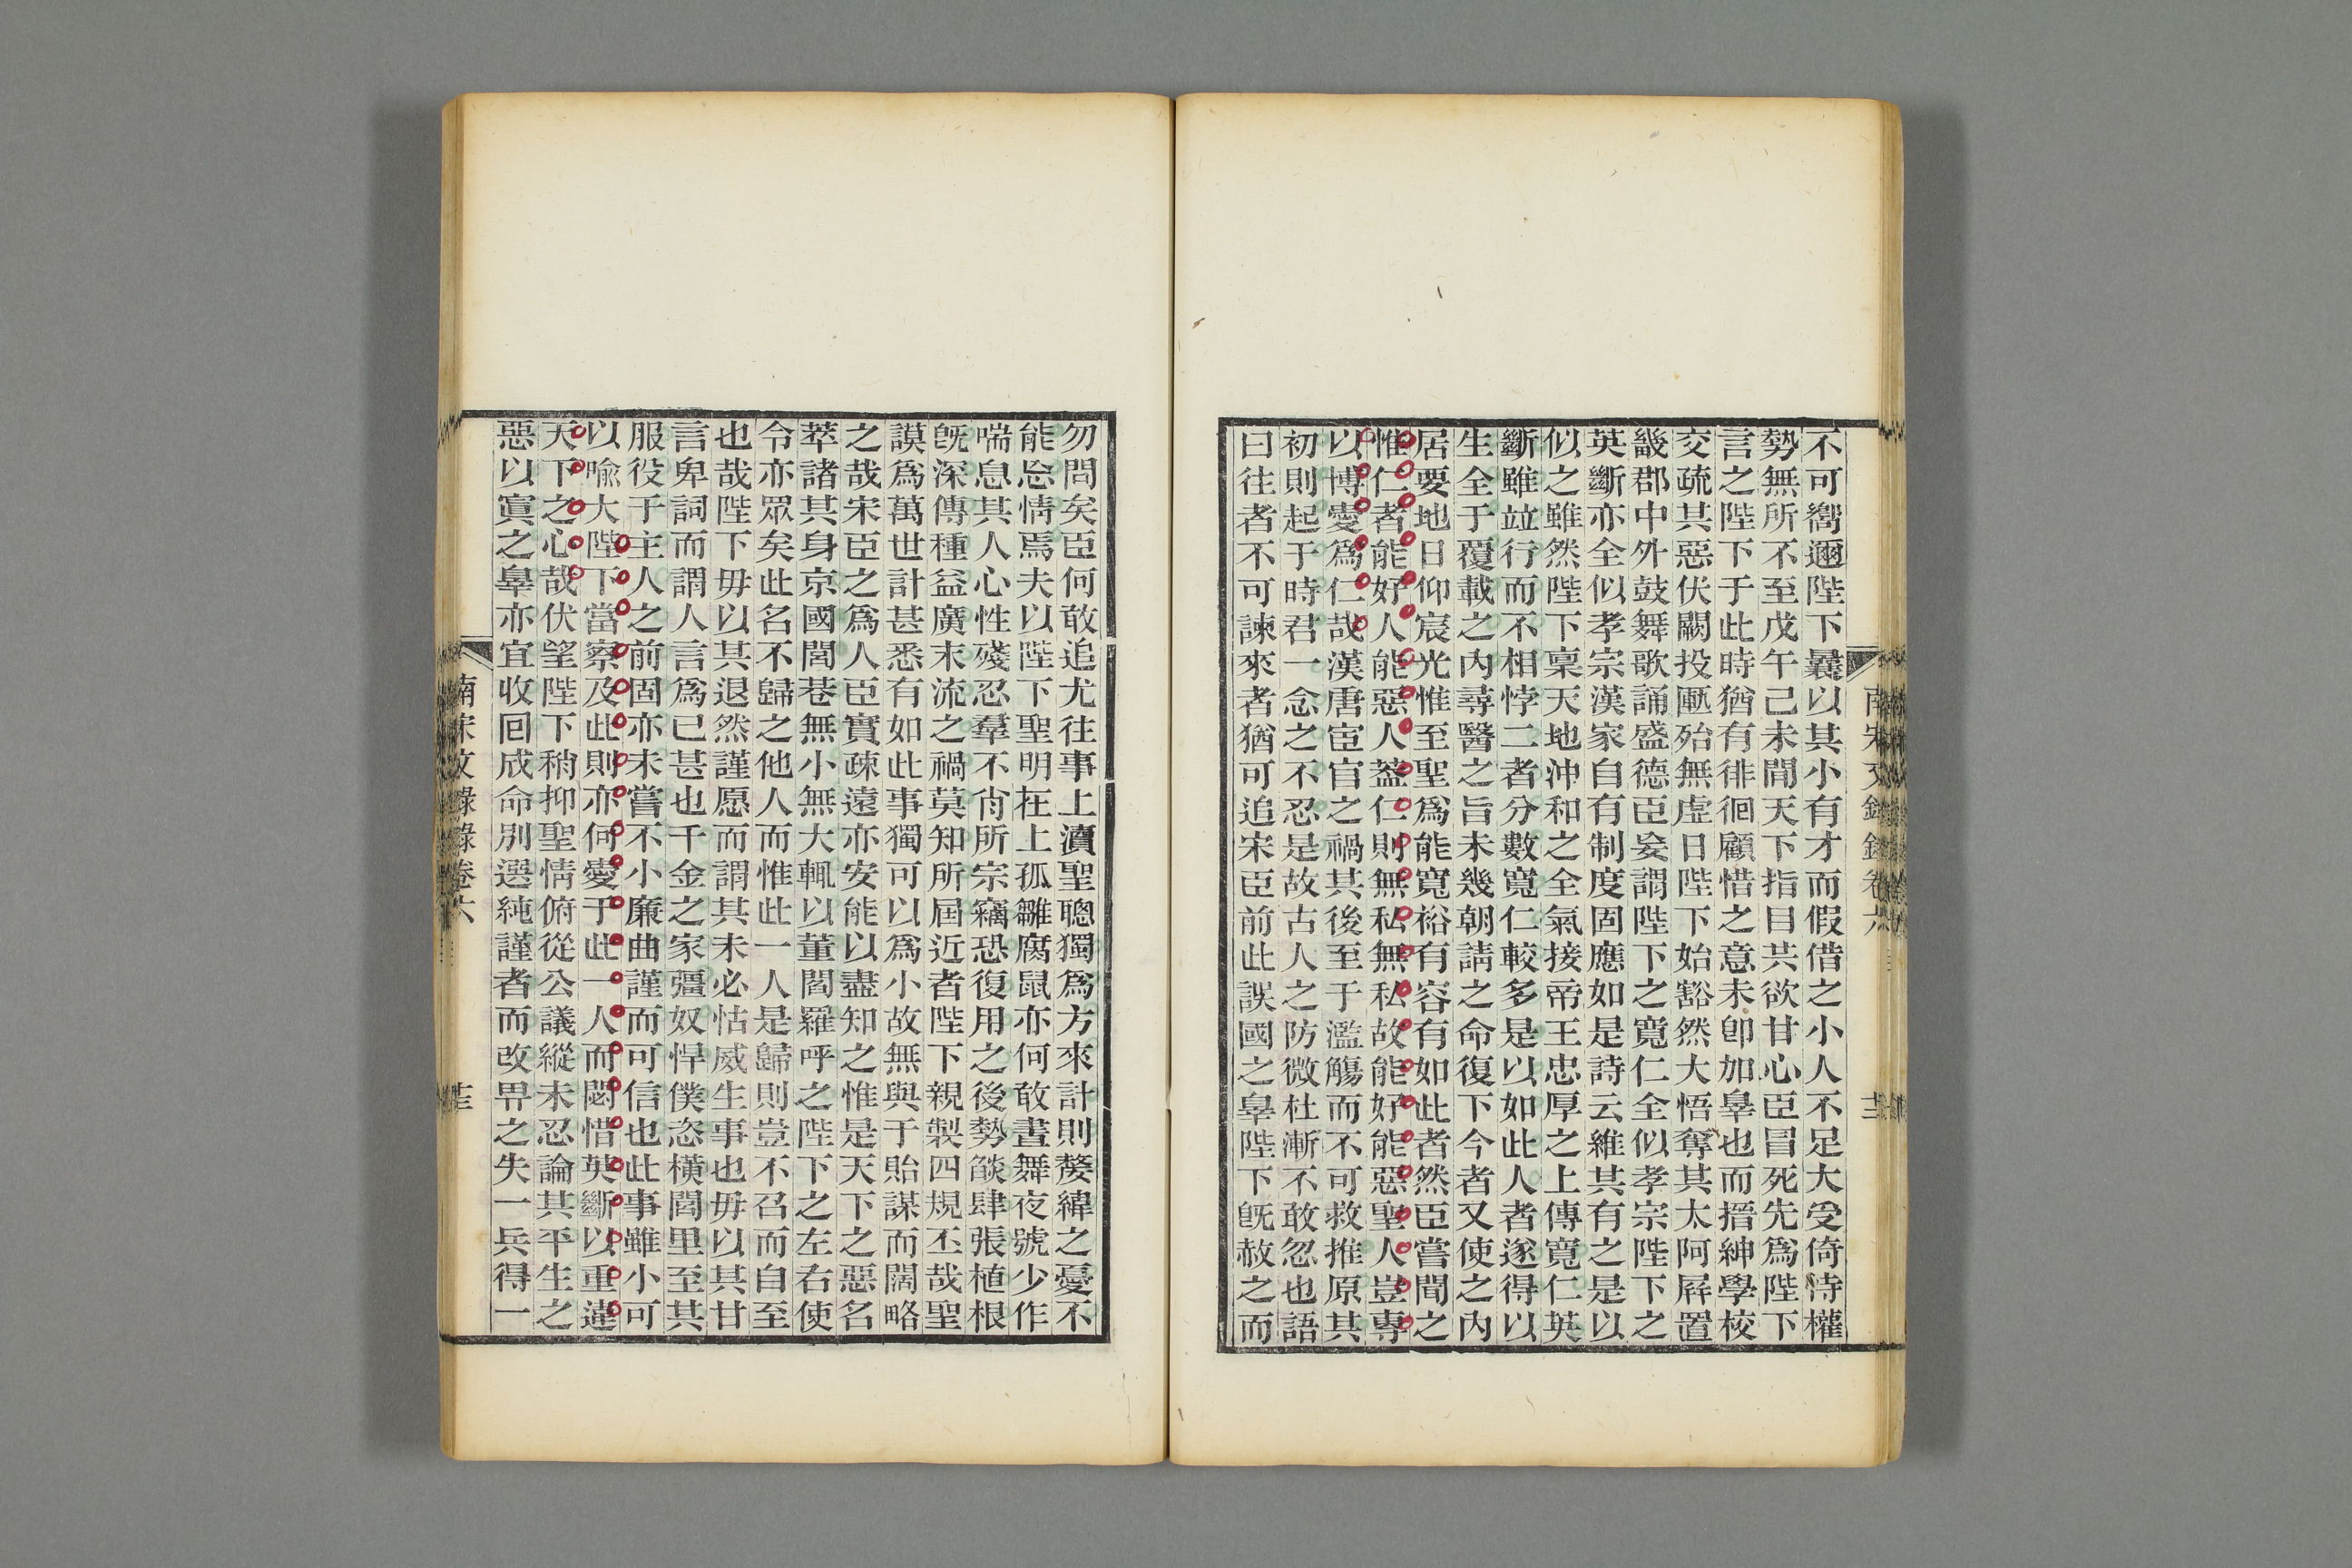 不可嚮邇陛下曩以其小有才而假借之小人不足大受倚恃權
勢無所不至戊午己未間天下指目共欲甘心臣冒死先為陛下
言之陛下于此時猶有徘徊顧惜之意未卽加辠也而搢紳學校
交疏其惡伏闕投匭殆無虛日陛下始豁然大悟奪其太阿屛置
畿郡中外鼓舞歌誦盛德臣妄謂陛下之寬仁全似孝宗陛下之
英斷亦全似孝宗漢家自有制度固應如是詩云維其有之是以
似之雖然陛下稟天地沖和之全氣接帝王忠厚之上傳寬仁英
斷雖竝行而不相悖二者分數寬仁較多是以如此人者遂得以
生全于覆載之內尋醫之旨未幾朝請之命復下今者又使之內
居要地日仰宸光惟至聖爲能寬裕有容有如此者然臣嘗聞之
惟仁者能好人能惡人葢仁則無私無私故能好能惡聖人豈專
以博愛爲仁哉漢唐宦官之禍其後至于濫觴而不可救推原其
初則起于時君一念之不忍是故古人之防微杜漸不敢忽也語
曰往者不可諫來者猶可追宋臣前此誤國之辠陛下旣赦之而
南宋文錄錄卷六
勿問矣臣何敢追尤往事上瀆聖聰獨爲方來計則嫠緯之憂不
能忘情焉夫以陛下聖明在上孤雛腐鼠亦何敢晝舞夜號少作
喘息其人心性殘忍羣不肖所宗竊恐復用之後勢燄肆張植根
旣深傳種益廣末流之禍莫知所屆近者陛下親製四規丕哉聖
謨爲萬世計甚悉有如此事獨可以爲小故無與于貽謀而闊略
之哉宋臣之爲人臣實疎遠亦安能以盡知之惟是天下之惡名
萃諸其身京國閭巷無小無大輒以董閻羅呼之陛下之左右使
令亦眾矣此名不歸之他人而惟此一人是歸則豈不召而自至
也哉陛下毋以其退然謹愿而謂其未必怙威生事也毋以其甘
言卑詞而謂人言爲已甚也千金之家彊奴悍僕恣橫閭里至其
服役于主人之前固亦未嘗不小廉曲謹而可信也此事雖小可
以喻大陛下當察及此則亦何愛于此一人而閟惜英斷以重違
天下之心哉伏望陛下稍抑聖情俯從公議縱未忍論其平生之
惡以寘之辠亦宜收回成命別選純謹者而改畀之失一兵得一
南宋文錄錄卷六